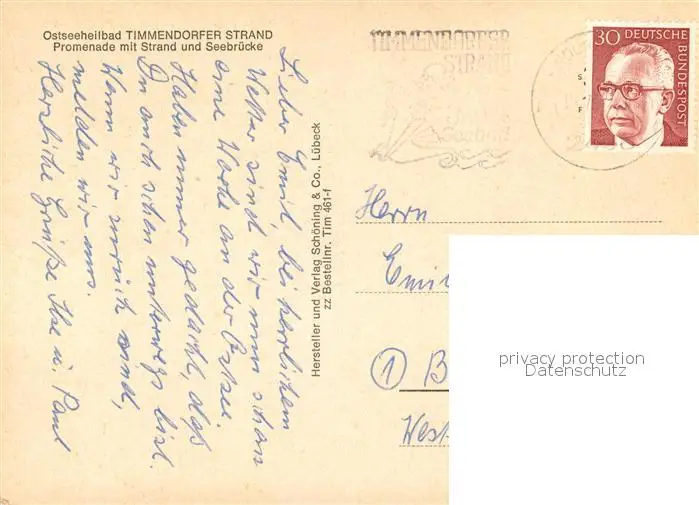 Ostseeheilbad TIMMENDORFER STRAND
Promenade mit Strand und Seebrücke
Lieber Emil, bei herrlichem
Wetter sind wir nun schon
eine Woche an der Ostsee.
Haben immer gedacht, daß
Du auch schon unterwegs bist.
Wenn wir zurück sind,
melden wir uns.
Herzliche Grüße Ilse u. Paul
Hersteller und Verlag Schöning & Co., Lübeck
zz Bestellnr. Tim 461-f
TIMMENDORFER
STRAND
30 DEUTSCHE
BUNDESPOST
Herrn
Emil
① B
West
privacy protection
Datenschutz